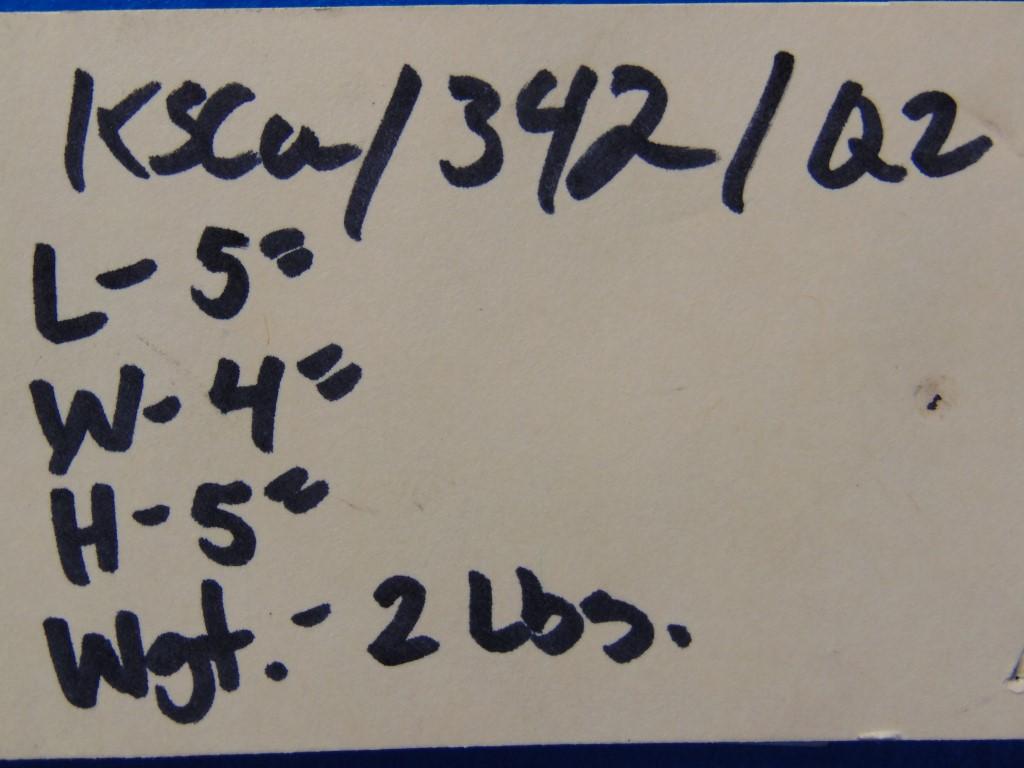 KSCu/342/Q2
L- 5"
W- 4"
H- 5"
Wgt.- 2 Lbs.